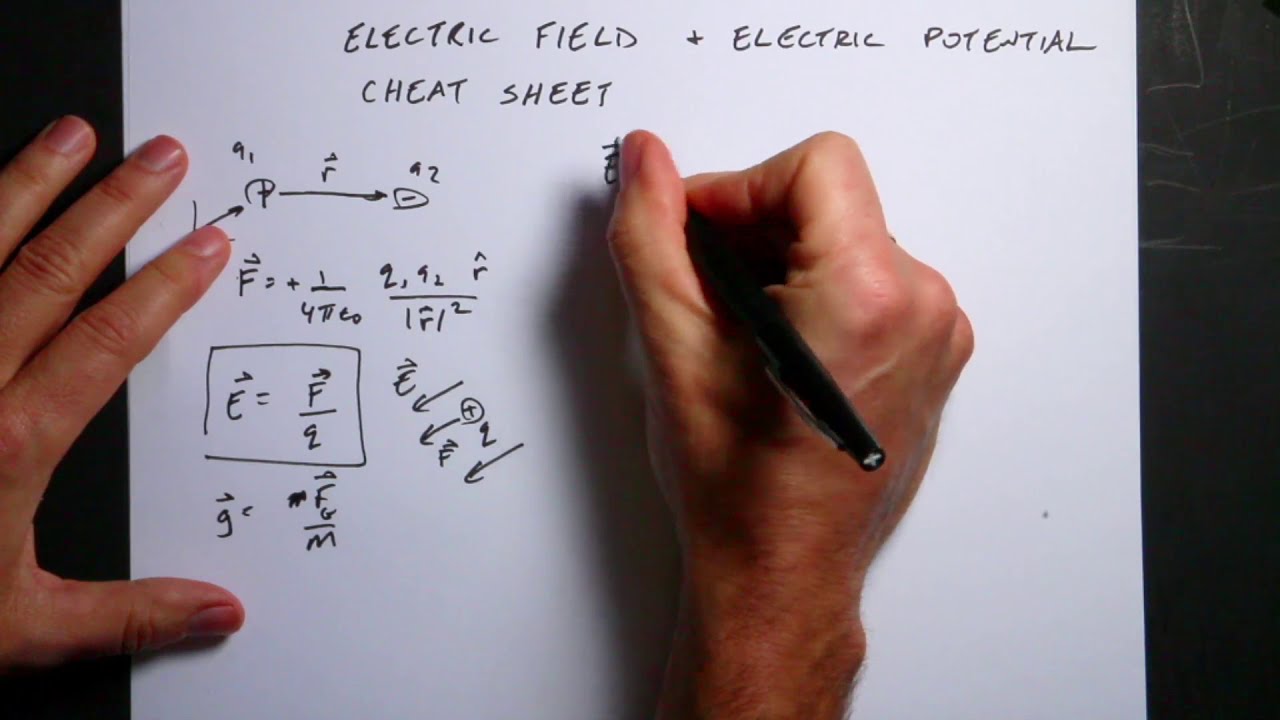 ELECTRIC FIELD + ELECTRIC POTENTIAL
CHEAT SHEET
q1 r⃗ q2
+ -
F⃗ = + 1/4πε₀ q₁q₂ r̂/|r⃗|²
E⃗ = F⃗/q
E⃗
+ q
F⃗
g⃗ = F⃗G/m
E⃗